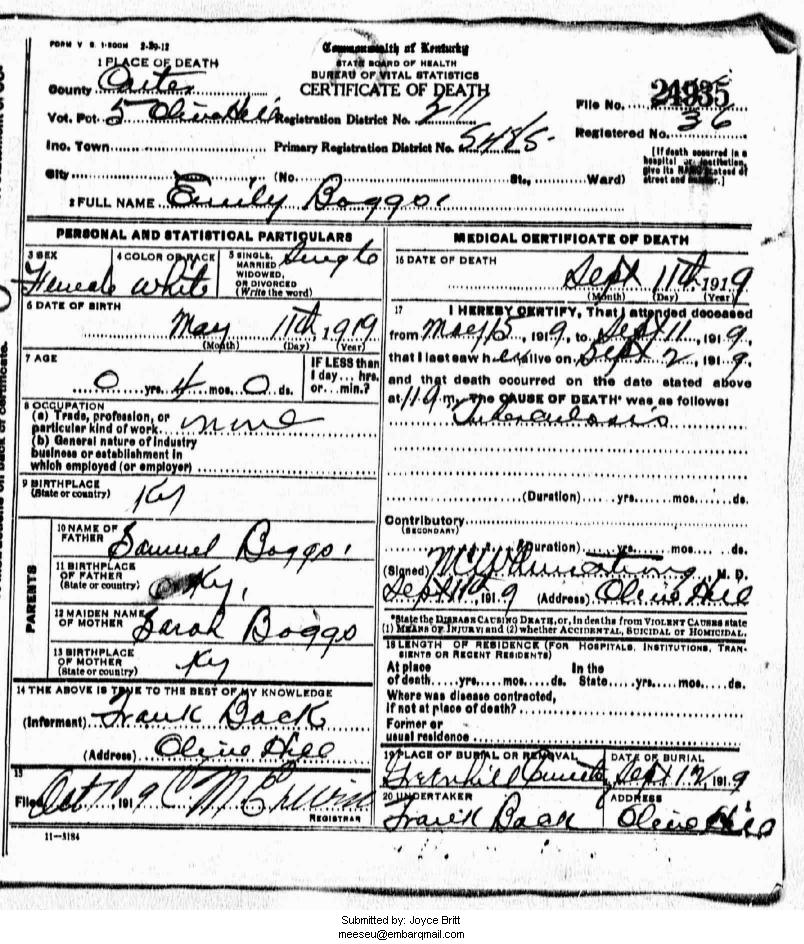 FORM V S. 1-500M 2-29-12
Commonwealth of Kentucky
STATE BOARD OF HEALTH
BUREAU OF VITAL STATISTICS
CERTIFICATE OF DEATH
1 PLACE OF DEATH
County Carter
Vot. Pct. 5 Olive Hill Registration District No. 211
File No. 24935
Inc. Town Primary Registration District No. 5485
Registered No. 36
City (No. St., Ward)
[If death occurred in a hospital or institution, give its NAME instead of street and number.]
2 FULL NAME Emily Boggs
PERSONAL AND STATISTICAL PARTICULARS
3 SEX Female
4 COLOR OR RACE White
5 SINGLE, MARRIED, WIDOWED, OR DIVORCED (Write the word) Single
6 DATE OF BIRTH
May 11th, 1919
(Month) (Day) (Year)
7 AGE
0 yrs. 4 mos. 0 ds.
IF LESS than 1 day... hrs. or... min.?
8 OCCUPATION
(a) Trade, profession, or particular kind of work
(b) General nature of industry
business or establishment in
which employed (or employer)
9 BIRTHPLACE
(State or country) Ky
PARENTS
10 NAME OF FATHER Samuel Boggs
11 BIRTHPLACE OF FATHER (State or country) Ky.
12 MAIDEN NAME OF MOTHER Sarah Boggs
13 BIRTHPLACE OF MOTHER (State or country) Ky
14 THE ABOVE IS TRUE TO THE BEST OF MY KNOWLEDGE
(Informant) Frank Back
(Address) Olive Hill
15
Filed Oct 1919 C M Erwin
REGISTRAR
11-3184
MEDICAL CERTIFICATE OF DEATH
16 DATE OF DEATH
Sept 11th 1919
(Month) (Day) (Year)
17 I HEREBY CERTIFY, That I attended deceased
from May 15, 1919, to Sept 11, 1919,
that I last saw her alive on Sept 2, 1919,
and that death occurred on the date stated above
at m. The CAUSE OF DEATH* was as follows:
Tuberculosis
(Duration) yrs. mos. ds.
Contributory
(SECONDARY)
(Duration) yrs. mos. ds.
(Signed) M. D.
Sept 1919 (Address) Olive Hill
*State the DISEASE CAUSING DEATH, or, in deaths from VIOLENT CAUSES state
(1) MEANS OF INJURY; and (2) whether ACCIDENTAL, SUICIDAL or HOMICIDAL.
18 LENGTH OF RESIDENCE (FOR HOSPITALS, INSTITUTIONS, TRANSIENTS OR RECENT RESIDENTS)
At place of death yrs. mos. ds. In the State yrs. mos. ds.
Where was disease contracted,
if not at place of death?
Former or
usual residence
19 PLACE OF BURIAL OR REMOVAL
DATE OF BURIAL
Sept 12, 1919
20 UNDERTAKER
Frank Back
ADDRESS
Olive Hill
Submitted by: Joyce Britt
meeseu@embarqmail.com